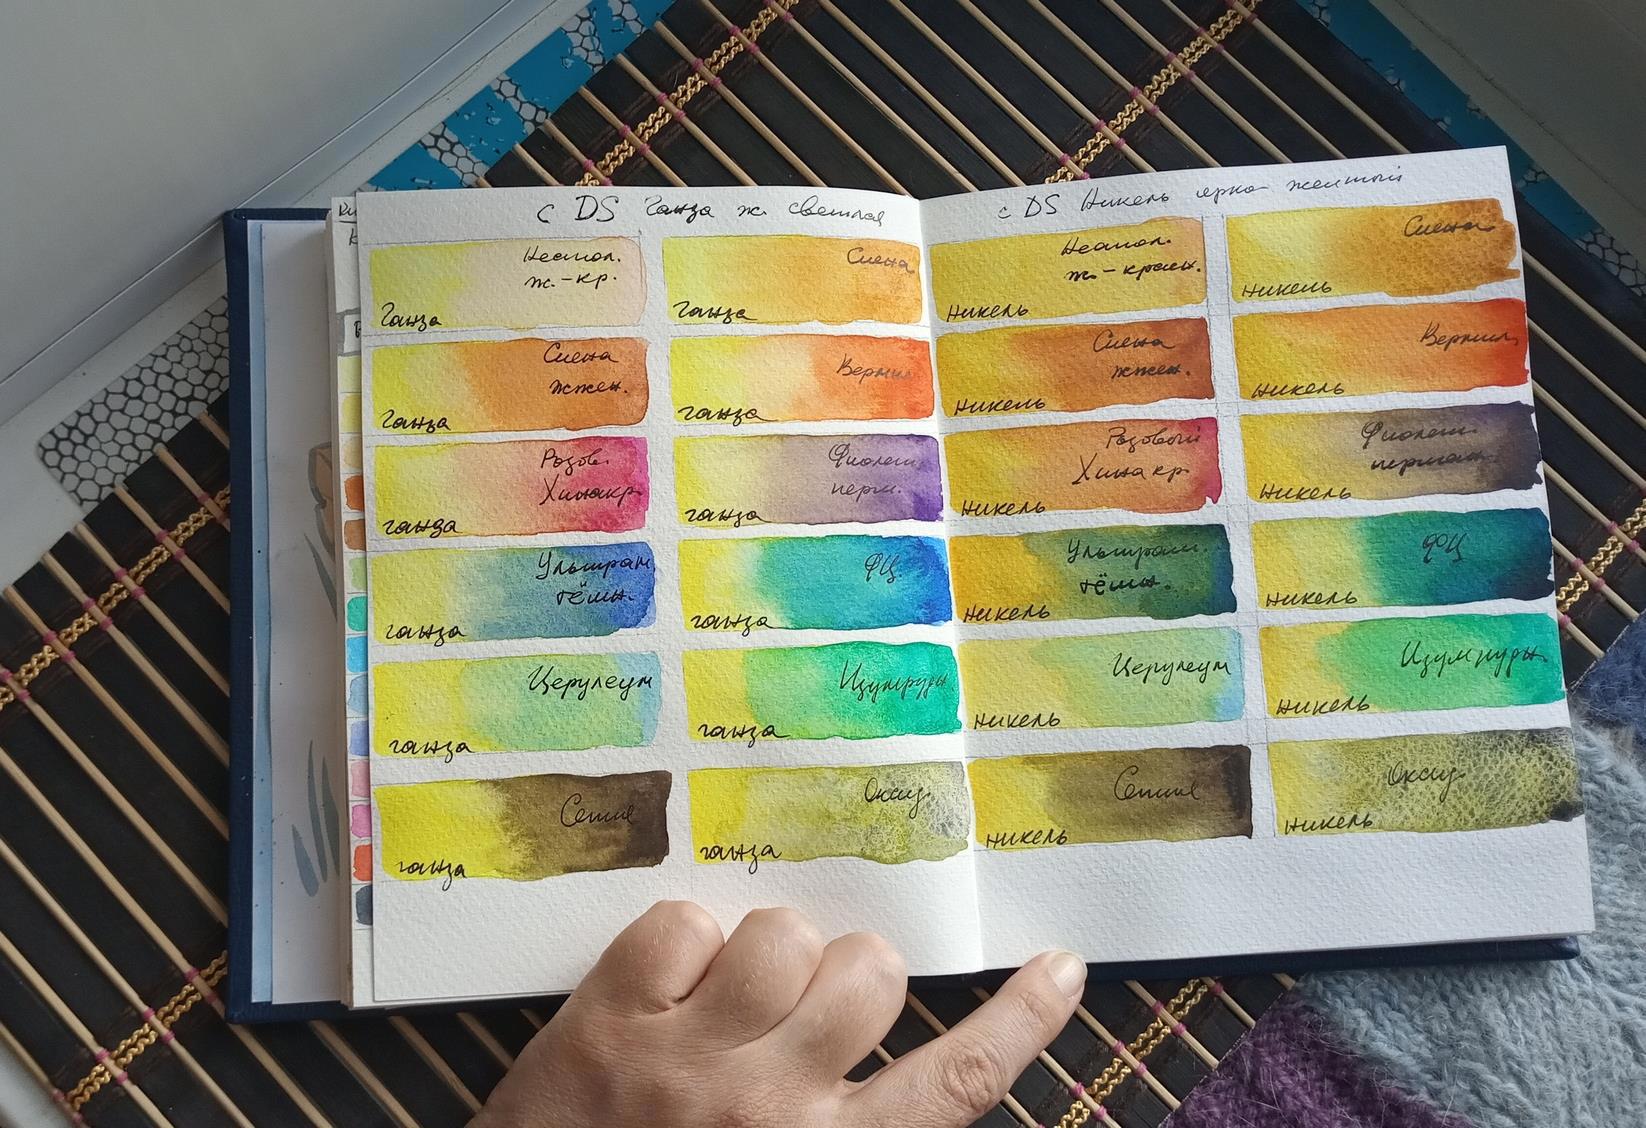 с DS Ганза ж. светлая
Неапол.
ж.-кр.
Ганза
Сиена
Ганза
Сиена
жжен.
Ганза
Вермил
ганза
Розов.
Хинакр.
ганза
Фиолет.
перм.
ганза
Ультрам
тёмн.
ганза
ФЦ.
ганза
Церулеум
ганза
Изумрудн
ганза
Сепия
ганза
Оксид
ганза
с DS Никель ярко желтый
Неапол.
ж.-красн.
никель
Сиена
никель
Сиена
жжен.
никель
Вермил
никель
Розовый
Хинакр.
никель
Фиолет.
перман.
никель
Ультрам.
тёмн.
никель
ФЦ
никель
Церулеум
никель
Изумрудн
никель
Сепия
никель
Оксид
никель